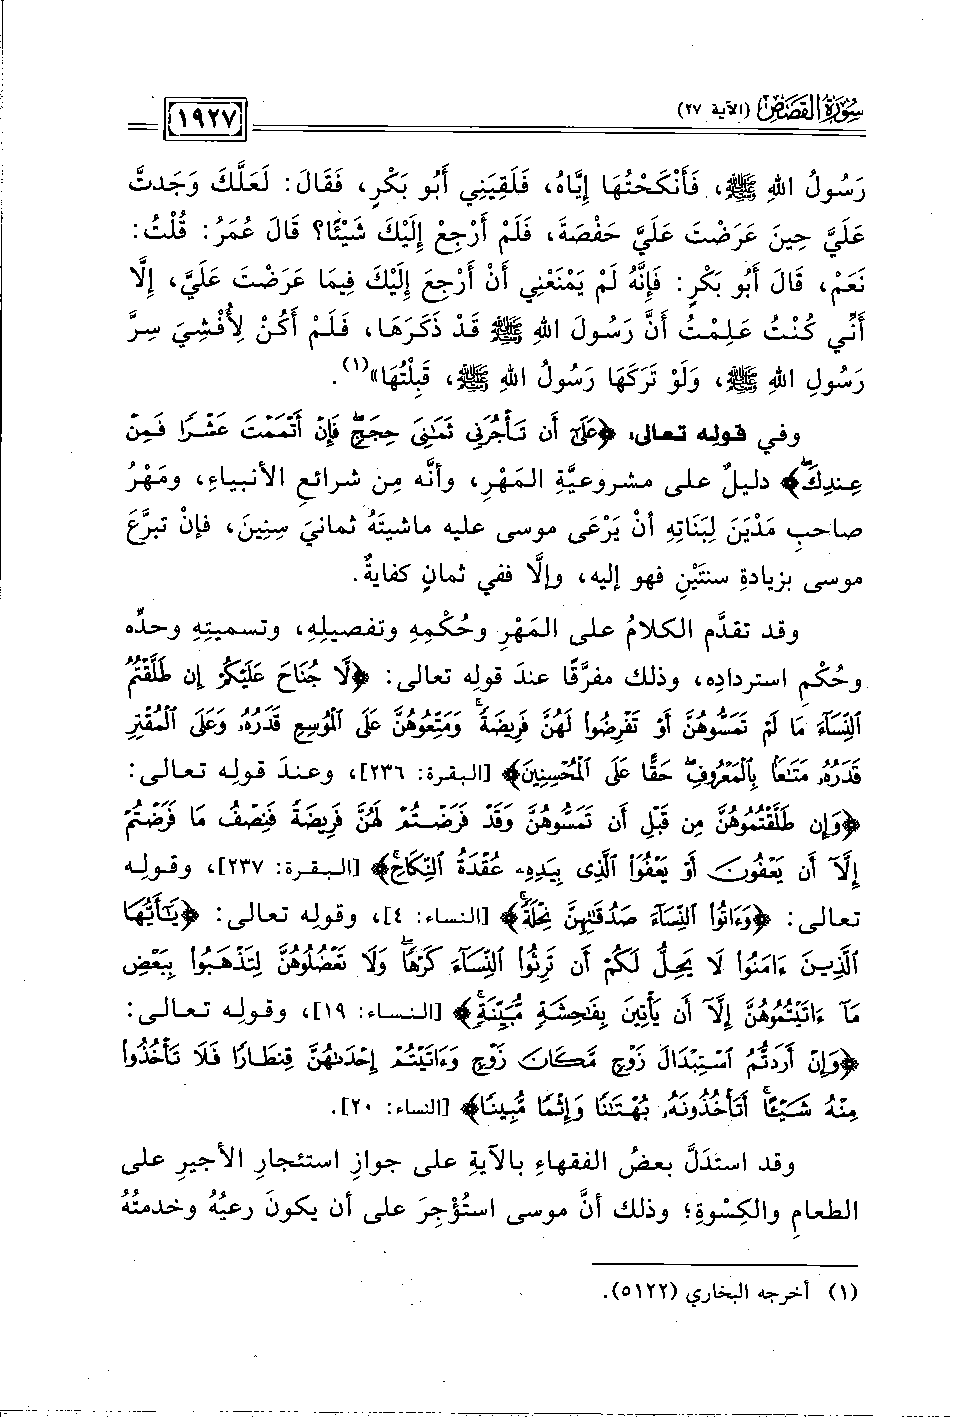 سُورَةُ القَصَصِ (الآية ٢٧)
١٩٢٧
رَسُولُ اللهِ ﷺ، فَأَنْكَحْتُهَا إِيَّاهُ، فَلَقِيَنِي أَبُو بَكْرٍ، فَقَالَ: لَعَلَّكَ وَجَدتَّ
عَلَيَّ حِينَ عَرَضْتَ عَلَيَّ حَفْصَةَ، فَلَمْ أَرْجِعْ إِلَيْكَ شَيْئًا؟ قَالَ عُمَرُ: قُلْتُ:
نَعَمْ، قَالَ أَبُو بَكْرٍ: فَإِنَّهُ لَمْ يَمْنَعْنِي أَنْ أَرْجِعَ إِلَيْكَ فِيمَا عَرَضْتَ عَلَيَّ، إِلَّا
أَنِّي كُنْتُ عَلِمْتُ أَنَّ رَسُولَ اللهِ ﷺ قَدْ ذَكَرَهَا، فَلَمْ أَكُنْ لِأُفْشِيَ سِرَّ
رَسُولِ اللهِ ﷺ، وَلَوْ تَرَكَهَا رَسُولُ اللهِ ﷺ، قَبِلْتُهَا»(١).
وفي قوله تعالى: ﴿عَلَىٰٓ أَن تَأْجُرَنِي ثَمَٰنِيَ حِجَجٍۖ فَإِنْ أَتْمَمْتَ عَشْرًا فَمِنْ
عِندِكَۖ﴾ دليلٌ على مشروعيَّةِ المَهْرِ، وأنَّه مِن شرائعِ الأنبياءِ، ومَهْرُ
صاحبِ مَدْيَنَ لِبَنَاتِهِ أنْ يَرْعَى موسى عليه ماشيتَهُ ثمانيَ سِنِينَ، فإنْ تبرَّعَ
موسى بزيادةِ سنتَيْنِ فهو إليه، وإلَّا ففي ثمانٍ كفايةٌ.
وقد تقدَّم الكلامُ على المَهْرِ وحُكْمِهِ وتفصيلِهِ، وتسميتِهِ وحدِّه
وحُكْمِ استردادِه، وذلك مفرَّقًا عندَ قولِه تعالى: ﴿لَّا جُنَاحَ عَلَيْكُمْ إِن طَلَّقْتُمُ
ٱلنِّسَآءَ مَا لَمْ تَمَسُّوهُنَّ أَوْ تَفْرِضُوا۟ لَهُنَّ فَرِيضَةًۚ وَمَتِّعُوهُنَّ عَلَى ٱلْمُوسِعِ قَدَرُهُۥ وَعَلَى ٱلْمُقْتِرِ
قَدَرُهُۥ مَتَٰعًۢا بِٱلْمَعْرُوفِۖ حَقًّا عَلَى ٱلْمُحْسِنِينَ﴾ [البقرة: ٢٣٦]، وعندَ قولِه تعالى:
﴿وَإِن طَلَّقْتُمُوهُنَّ مِن قَبْلِ أَن تَمَسُّوهُنَّ وَقَدْ فَرَضْتُمْ لَهُنَّ فَرِيضَةً فَنِصْفُ مَا فَرَضْتُمْ
إِلَّآ أَن يَعْفُونَ أَوْ يَعْفُوَا۟ ٱلَّذِى بِيَدِهِۦ عُقْدَةُ ٱلنِّكَاحِۚ﴾ [البقرة: ٢٣٧]، وقولِه
تعالى: ﴿وَءَاتُوا۟ ٱلنِّسَآءَ صَدُقَٰتِهِنَّ نِحْلَةًۚ﴾ [النساء: ٤]، وقولِه تعالى: ﴿يَٰٓأَيُّهَا
ٱلَّذِينَ ءَامَنُوا۟ لَا يَحِلُّ لَكُمْ أَن تَرِثُوا۟ ٱلنِّسَآءَ كَرْهًاۖ وَلَا تَعْضُلُوهُنَّ لِتَذْهَبُوا۟ بِبَعْضِ
مَآ ءَاتَيْتُمُوهُنَّ إِلَّآ أَن يَأْتِينَ بِفَٰحِشَةٍ مُّبَيِّنَةٍۚ﴾ [النساء: ١٩]، وقولِه تعالى:
﴿وَإِنْ أَرَدتُّمُ ٱسْتِبْدَالَ زَوْجٍ مَّكَانَ زَوْجٍ وَءَاتَيْتُمْ إِحْدَىٰهُنَّ قِنطَارًا فَلَا تَأْخُذُوا۟
مِنْهُ شَيْـًٔاۚ أَتَأْخُذُونَهُۥ بُهْتَٰنًا وَإِثْمًا مُّبِينًا﴾ [النساء: ٢٠].
وقد استدَلَّ بعضُ الفقهاءِ بالآيةِ على جوازِ استئجارِ الأجيرِ على
الطعامِ والكِسْوةِ؛ وذلك أنَّ موسى استُؤْجِرَ على أن يكونَ رعيُهُ وخدمتُهُ
(١) أخرجه البخاري (٥١٢٢).